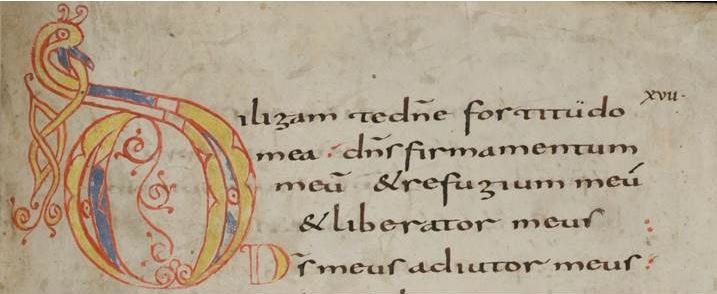 Diligam te dn̄e fortitudo xvii·
mea· dn̄s firmamentum
meū & refugium meū
& liberator meus :
D̄s meus adiutor meus :